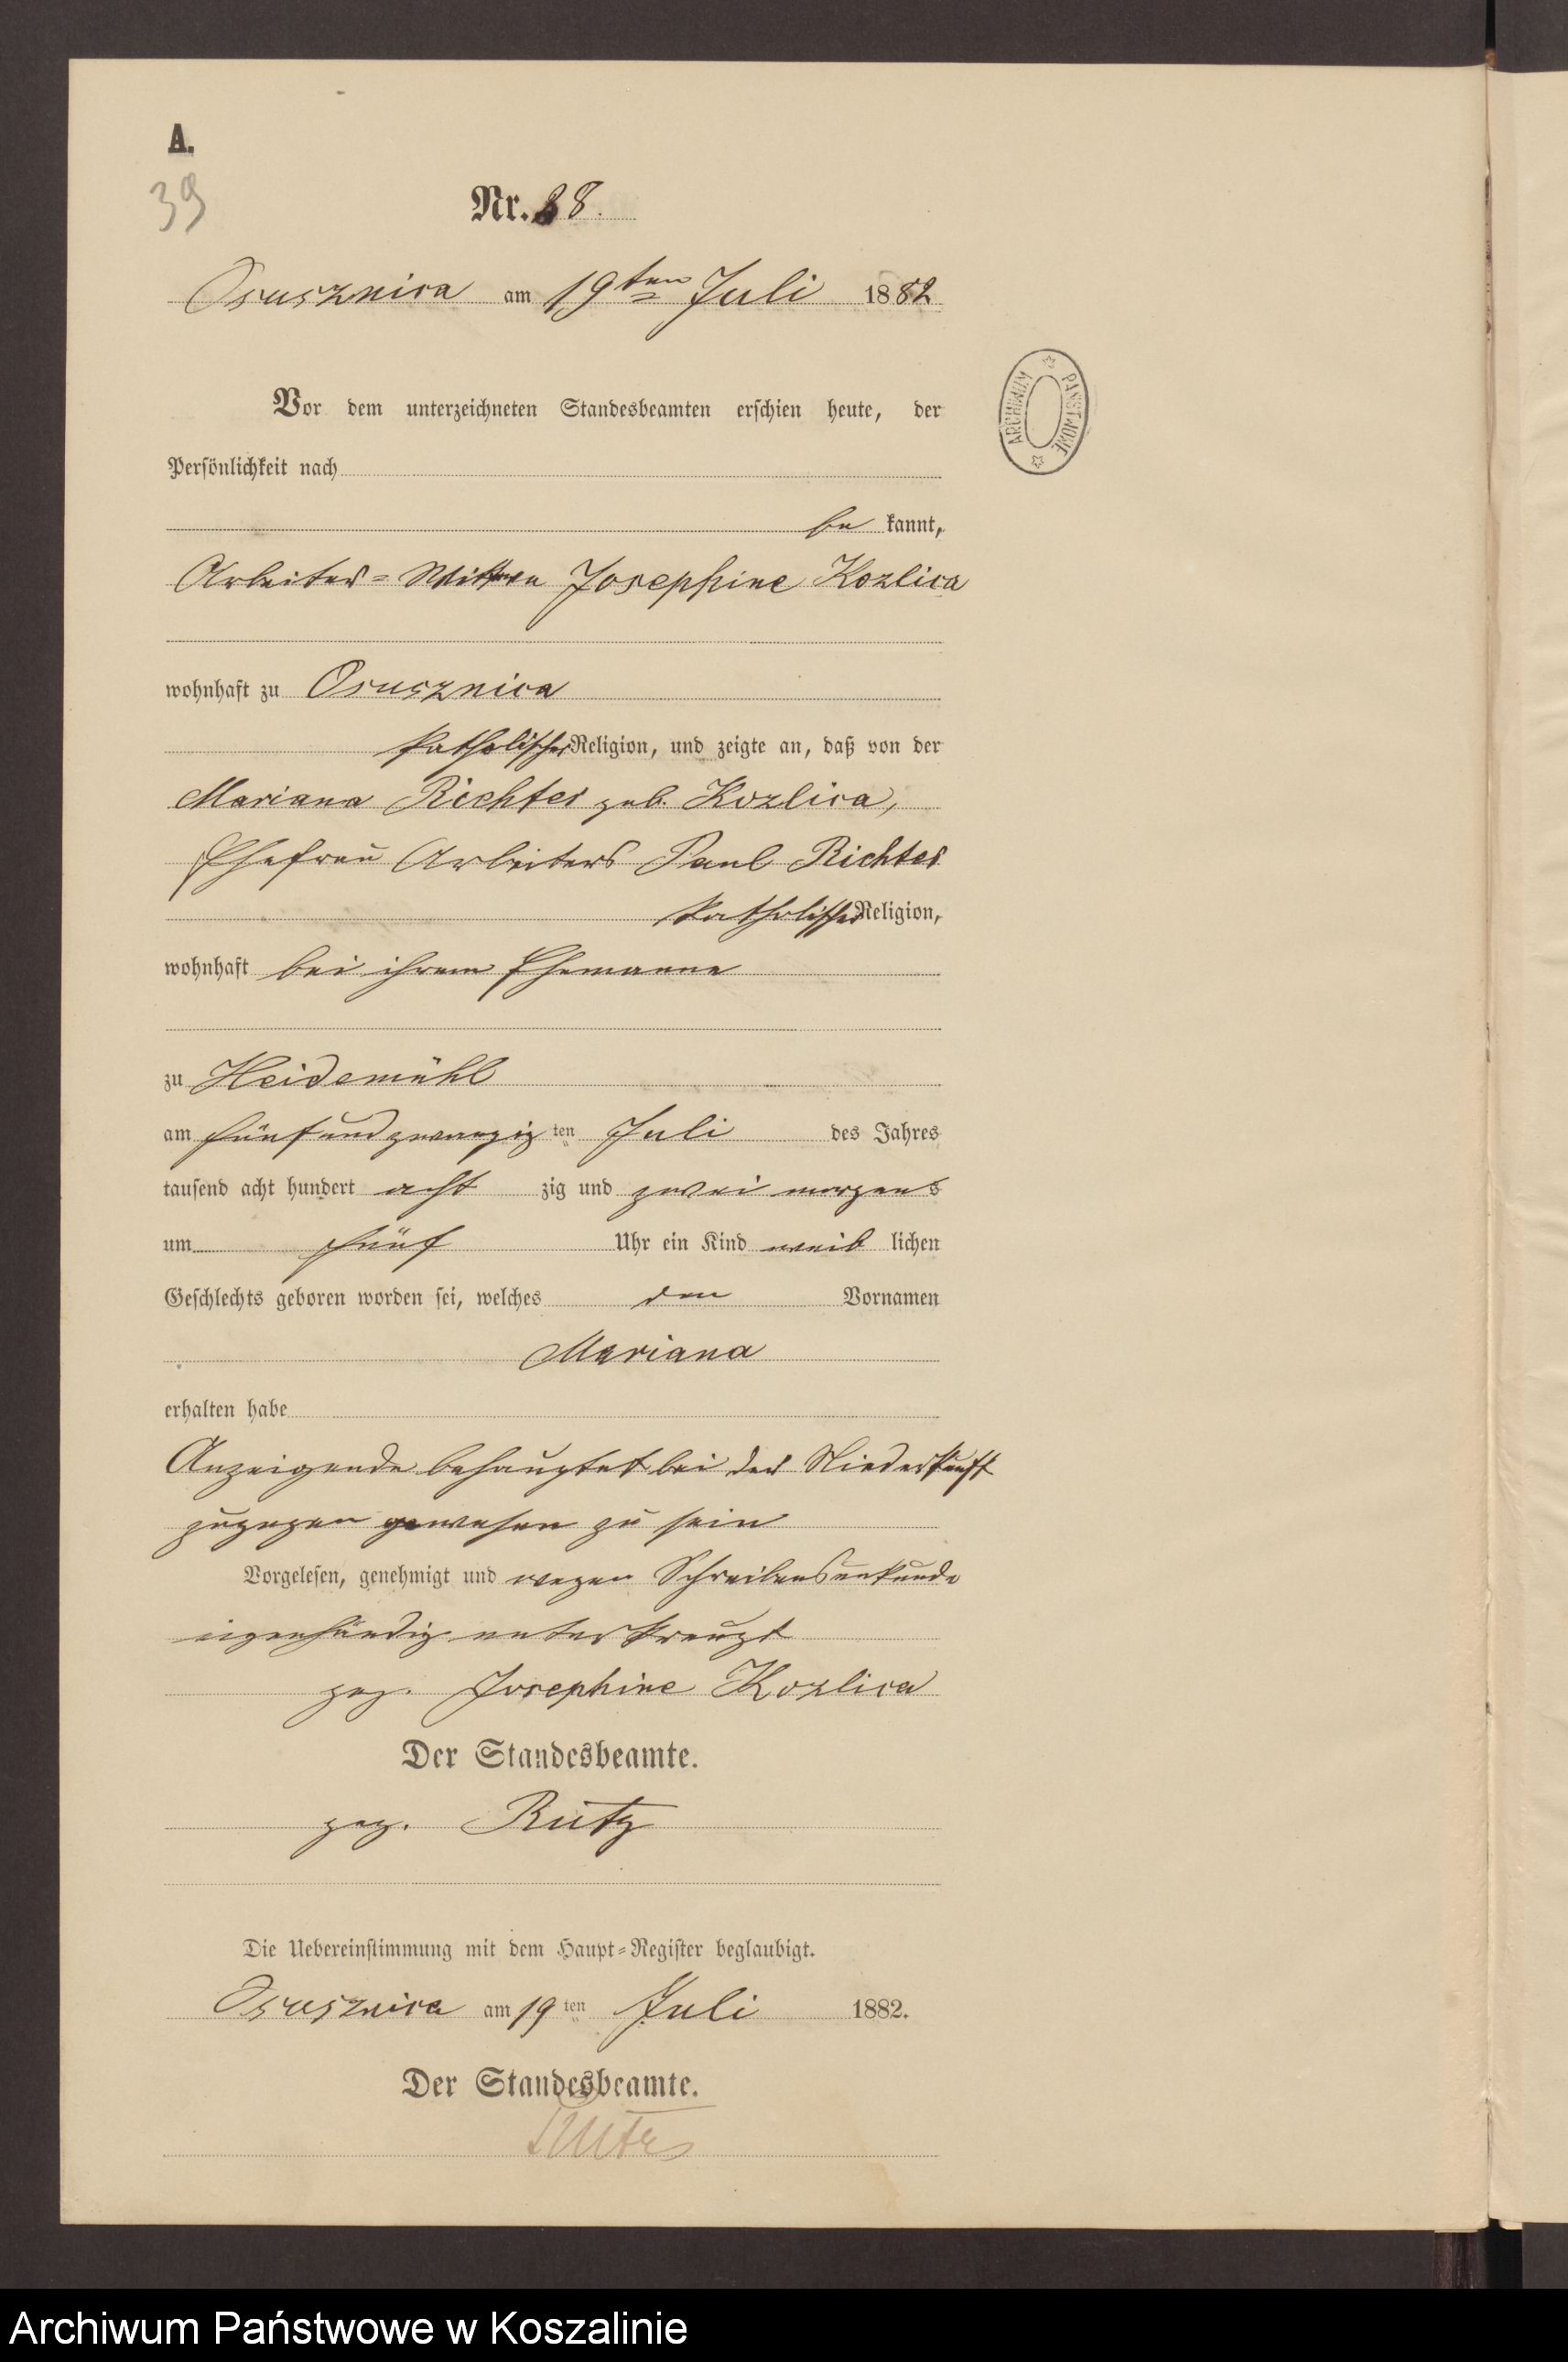 A.
39
Nr. 38.
Osusznica am 19ten Juli 1882
ARCHIWUM PAŃSTWOWE
Vor dem unterzeichneten Standesbeamten erschien heute, der
Persönlichkeit nach
be kannt,
Arbeiter-Wittwe Josephine Kozlica
wohnhaft zu Osusznica
katholischer Religion, und zeigte an, daß von der
Mariana Richter geb. Kozlica,
Ehefrau Arbeiters Paul Richter
katholischer Religion,
wohnhaft bei ihrem Ehemanne
zu Heidemühl
am fünfundzwanzig ten Juli des Jahres
tausend acht hundert acht zig und zwei morgens
um fünf Uhr ein Kind weib lichen
Geschlechts geboren worden sei, welches den Vornamen
Mariana
erhalten habe
Anzeigende behauptet bei der Niederkunft
zugegen gewesen zu sein
Vorgelesen, genehmigt und wegen Schreibensunkunde
eigenhändig unterkreuzt
gez. Josephine Kozlica
Der Standesbeamte.
gez. Rutz
Die Uebereinstimmung mit dem Haupt-Register beglaubigt.
Osusznica am 19 ten Juli 1882.
Der Standesbeamte.
Archiwum Państwowe w Koszalinie